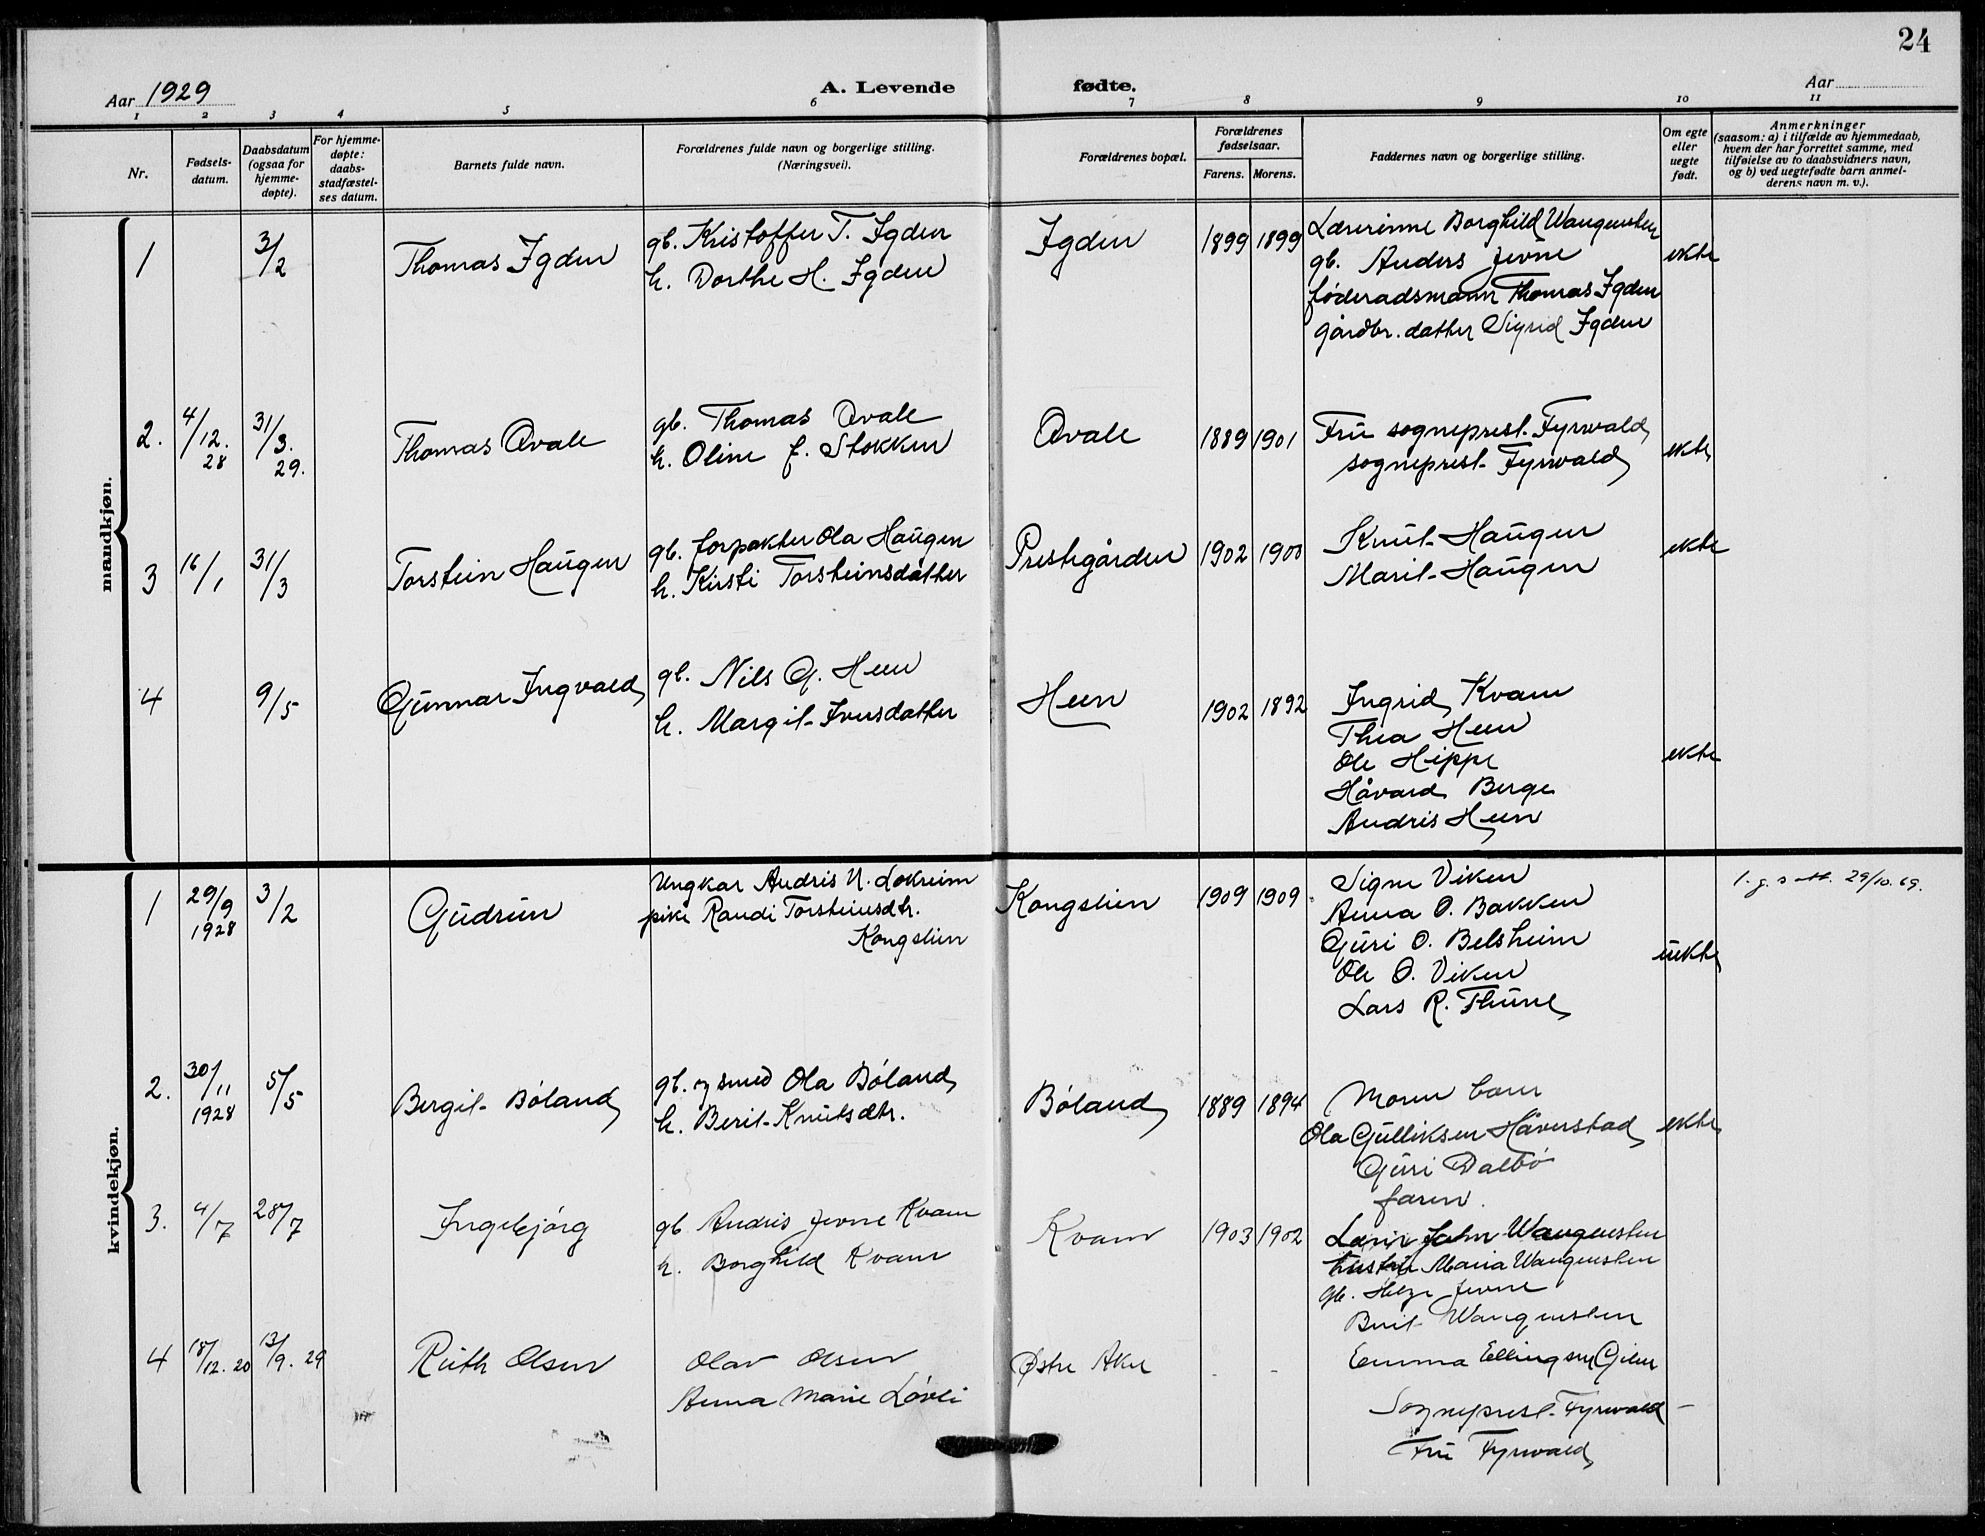 24
Aar 1929
A. Levende fødte.
Aar
1 2 3 4 5 6 7 8 9 10 11
Nr.
Fødsels-
datum.
Daabsdatum
(ogsaa for
hjemme-
døpte).
For hjemme-
døpte:
daabs-
stadfæstel-
ses datum.
Barnets fulde navn.
Forældrenes fulde navn og borgerlige stilling.
(Næringsvei).
Forældrenes bopæl.
Forældrenes
fødselsaar.
Farens. Morens.
Faddernes navn og borgerlige stilling.
Om egte
eller
uegte
født.
Anmerkninger
(saasom: a) i tilfælde av hjemmedaab,
hvem der har forrettet samme, med
tilføielse av to daabsvidners navn,
og b) ved uegtefødte barn anmel-
derens navn m. v.).
mandkjøn.
1
3/2
Thomas Igden
gb. Kristoffer T. Igden
h. Dorthe H. Igden
Igden
1899 1899
Lærerinne Borghild Wangensten
gb. Anders Jevne
føderadsmann Thomas Igden
gårdbr. datter Sigrid Igden
ekte
2.
4/12.
28
31/3.
29.
Thomas Qvale
gb. Thomas Qvale
h. Oline f. Stokken
Qvale
1889 1901
Frü sogneprest Fyrwald
sogneprest Fyrwald
ekte
3
16/1
31/3
Torstein Haŭgen
gb. forpakter Ola Haŭgen
h. Kirsti Torsteinsdatter
Prestegården
1902 1900
Knŭt Haŭgen
Marit Haŭgen
ekte
4
9/5
Gŭnnar Ingvald
gb. Nils G. Heen
h. Margit Iversdatter
Heen
1902 1892
Ingrid Kvam
Thea Heen
Ole Hippe
Håvard Berge
Andris Heen
ekte
kvindekjøn.
1
29/9
1928
3/2
Gŭdrŭn
Ungkar Andris N. Lokreim
pike Randi Torsteinsdtr.
Kongslien
Kongslien
1909 1909
Signe Viken
Anna O. Bakken
Gŭri O. Belsheim
Ole O. Viken
Lars R. Thŭne
ŭekte
1. g. s att. 29/10. 69.
2.
30/11
1928
5/5
Bergit Bøland
gb. og smed Ola Bøland
h. Berit Knŭtsdtr.
Bøland
1889 1894
Moren bar
Ola Gŭlliksen Håverstad
Gŭri Dalbø
faren.
ekte
3.
4/7
28/7
Ingebjørg
gb Andris Jevne Kvam
h. Borghild Kvam
Kvam
1903 1902
Lærer John Wangensten
hustru Maria Wangensten
gb. Helge Jevne
Berit Wangensten
4
18/12. 20
13/9. 29
Rŭth Olsen
Olav Olsen
Anna Marie Løvli
Østre Aker
- -
Emma Ellingsen Gilen
Sogneprest Fyrwald
Frŭ Fyrwald
-